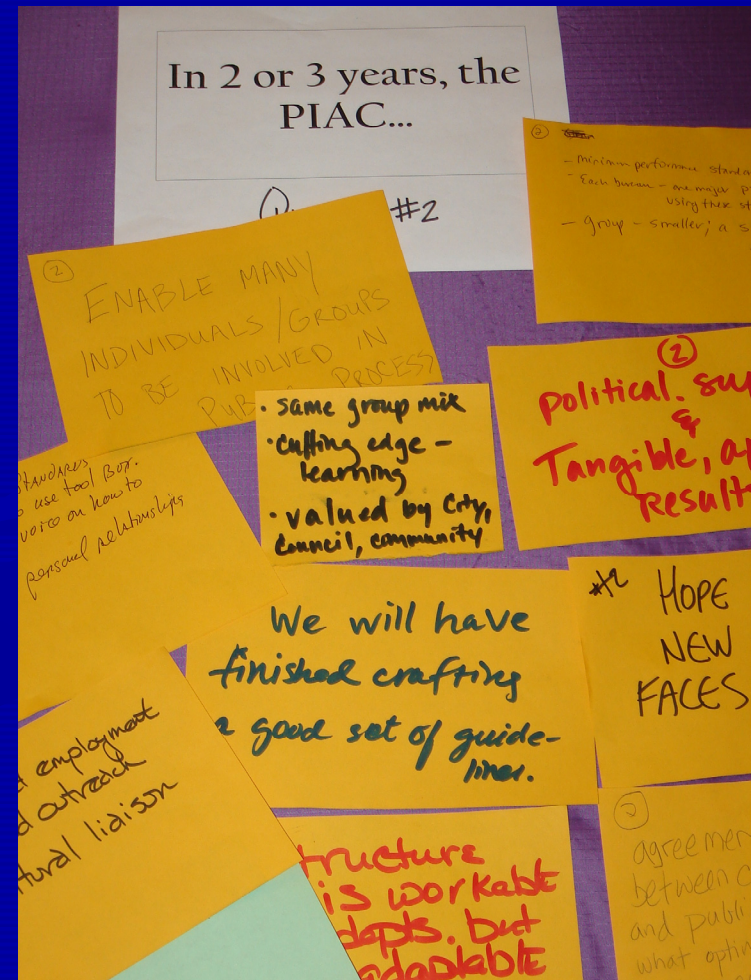 In 2 or 3 years, the
PIAC...
#2
②
- minimum performance standa
- Each bureau - one major p
using these st
- group - smaller; a s
②
ENABLE MANY
INDIVIDUALS/GROUPS
TO BE INVOLVED IN
PUBLIC PROCESS
②
political. sup
&
Tangible, ap
Results
• same group mix
• cutting edge -
learning
• valued by City,
Council, community
STANDARDS
use tool Box.
voice on how to
personal relationships
We will have
finished crafting
a good set of guide-
lines.
#2 HOPE
NEW
FACES
employment
outreach
liaison
tructure
is workable
dapts. but
adaptable
②
agreemen
between c
and publi
what optin